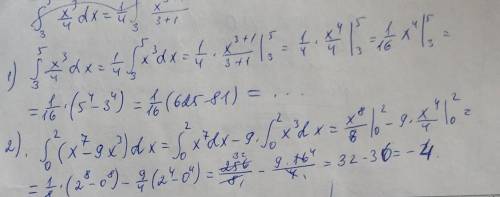 ∫₃ x³/4 dx = 1/4 x³⁺¹/3+1
1) ∫₃⁵ x³/4 dx = 1/4 ∫₃⁵ x³dx = 1/4 · x³⁺¹/3+1 |₃⁵ = 1/4 · x⁴/4 |₃⁵ = 1/16 x⁴ |₃⁵ =
= 1/16 · (5⁴ - 3⁴) = 1/16 (625 - 81) = ...
2). ∫₀² (x⁷ - 9x³)dx = ∫₀² x⁷dx - 9 · ∫₀² x³dx = x⁸/8 |₀² - 9 · x⁴/4 |₀² =
= 1/8 · (2⁸ - 0⁸) - 9/4 (2⁴ - 0⁴) = 256/8 - 9 · 16/4 = 32 - 36 = -4.